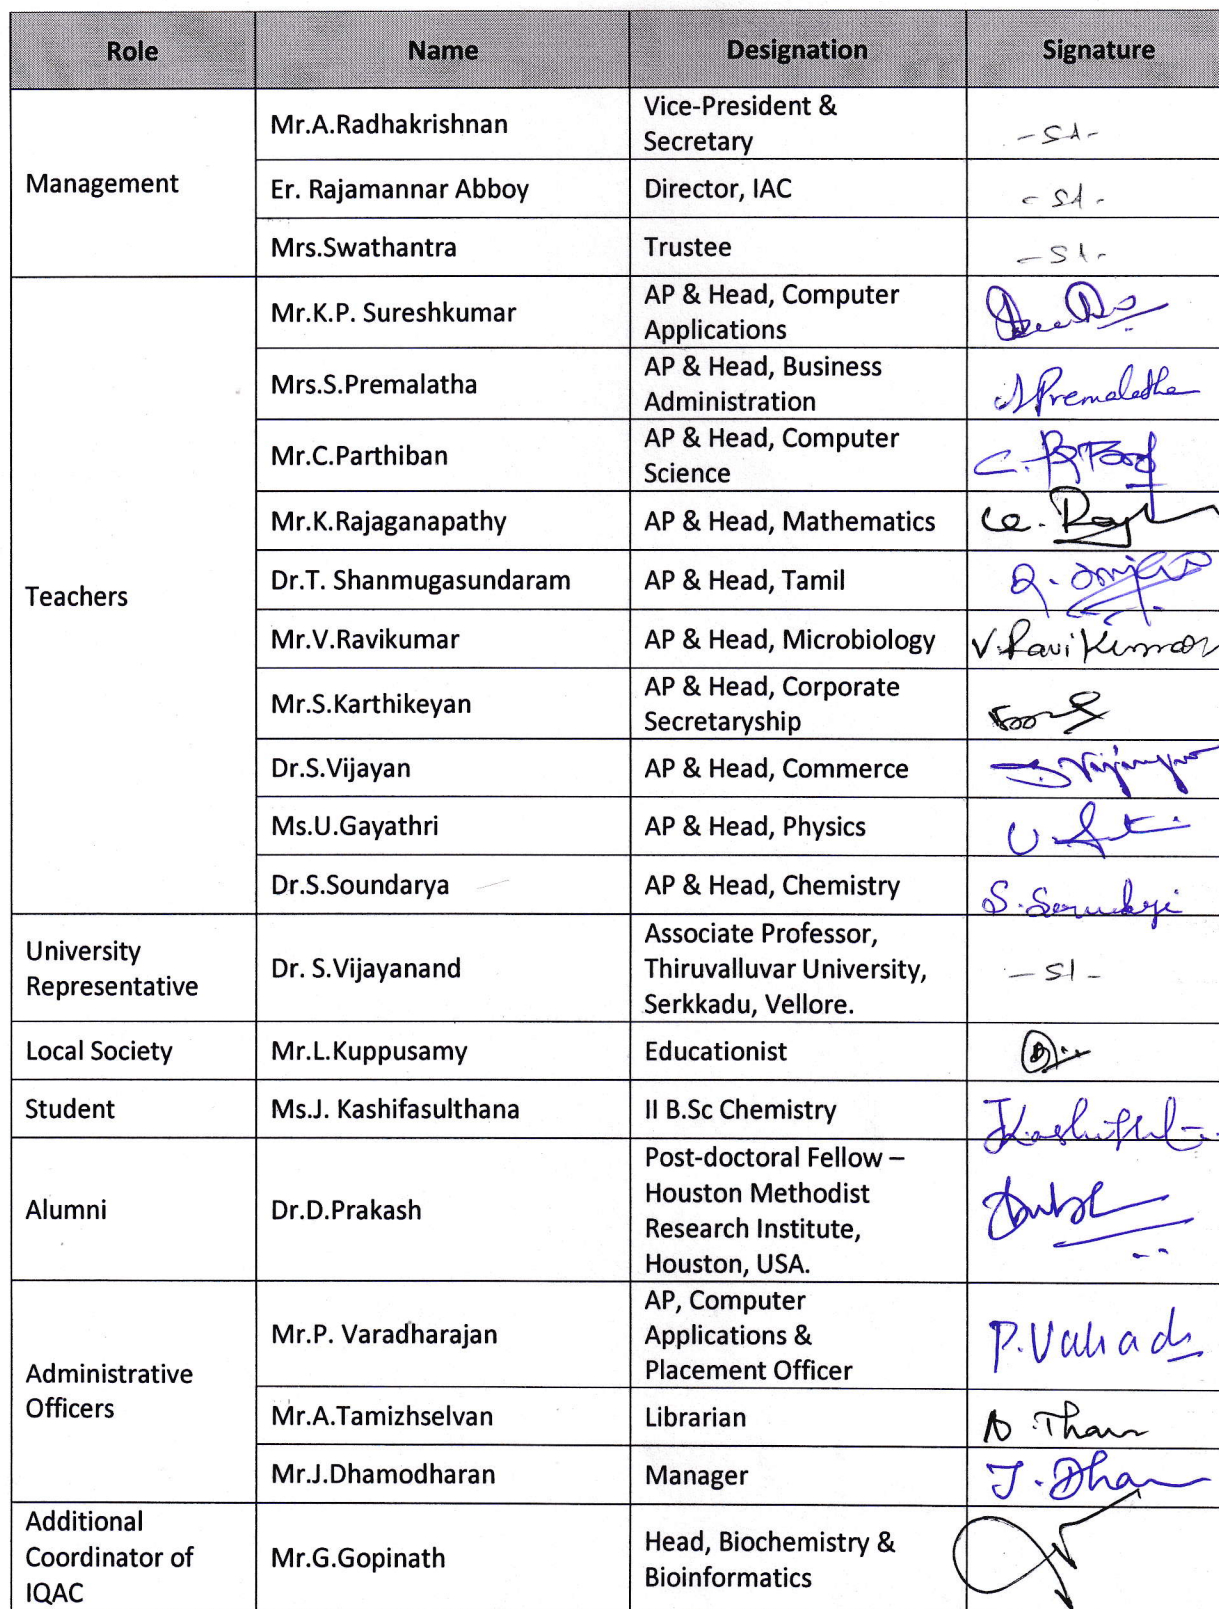 Role Name Designation Signature
Management
Mr.A.Radhakrishnan
Vice-President &
Secretary
-Sd-
Er. Rajamannar Abboy
Director, IAC
-Sd-
Mrs.Swathantra
Trustee
-Sd-
Teachers
Mr.K.P. Sureshkumar
AP & Head, Computer
Applications
Mrs.S.Premalatha
AP & Head, Business
Administration
S Premalatha
Mr.C.Parthiban
AP & Head, Computer
Science
Mr.K.Rajaganapathy
AP & Head, Mathematics
Dr.T. Shanmugasundaram
AP & Head, Tamil
Mr.V.Ravikumar
AP & Head, Microbiology
V.RaviKumar
Mr.S.Karthikeyan
AP & Head, Corporate
Secretaryship
Dr.S.Vijayan
AP & Head, Commerce
Ms.U.Gayathri
AP & Head, Physics
Dr.S.Soundarya
AP & Head, Chemistry
University
Representative
Dr. S.Vijayanand
Associate Professor,
Thiruvalluvar University,
Serkkadu, Vellore.
-Sd-
Local Society
Mr.L.Kuppusamy
Educationist
Student
Ms.J. Kashifasulthana
II B.Sc Chemistry
Alumni
Dr.D.Prakash
Post-doctoral Fellow –
Houston Methodist
Research Institute,
Houston, USA.
Administrative
Officers
Mr.P. Varadharajan
AP, Computer
Applications &
Placement Officer
Mr.A.Tamizhselvan
Librarian
Mr.J.Dhamodharan
Manager
J. Dham
Additional
Coordinator of
IQAC
Mr.G.Gopinath
Head, Biochemistry &
Bioinformatics